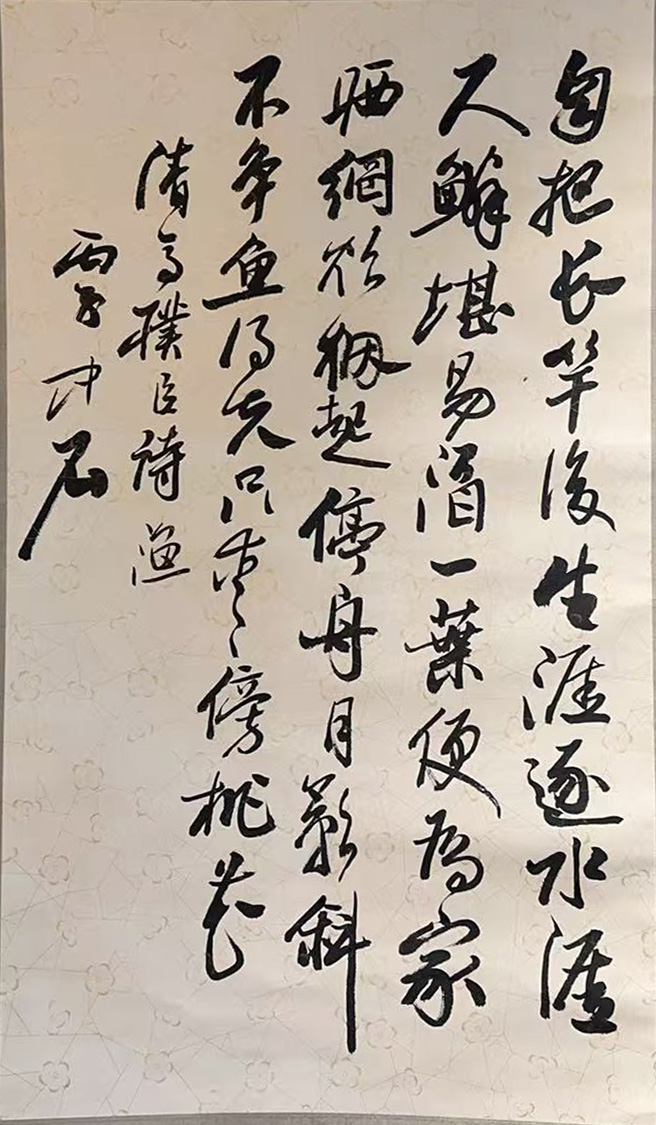 自把长竿後生涯逐水涯
尺鳞堪易酒一葉便为家
晒網炊烟起停舟月影斜
不争鱼得失只爱傍桃花
清高樸臣詩渔
丙子中石